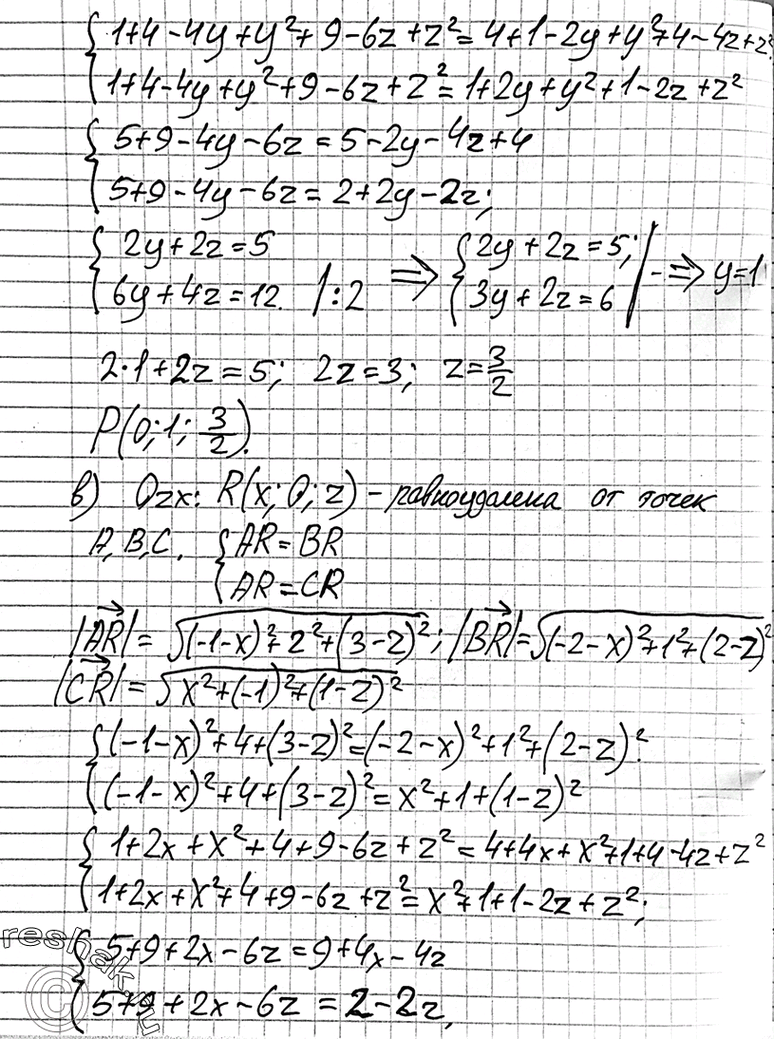 { 1+4-4y+y²+9-6z+z²=4+1-2y+y²+4-4z+z²;
{ 1+4-4y+y²+9-6z+z²=1+2y+y²+1-2z+z²
{ 5+9-4y-6z=5-2y-4z+4
{ 5+9-4y-6z=2+2y-2z;
{ 2y+2z=5 ⇒ { 2y+2z=5; | - ⇒ y=1
{ 6y+4z=12. |:2 { 3y+2z=6
2·1+2z=5; 2z=3; z=3/2
P(0;1;3/2).
в) Ozx: R(x;0;z) - равноудалена от точек
A,B,C. { AR=BR
{ AR=CR
|AR→|=√((-1-x)²+2²+(3-z)²); |BR→|=√((-2-x)²+1²+(2-z)²)
|CR→|=√(x²+(-1)²+(1-z)²)
{ (-1-x)²+4+(3-z)²=(-2-x)²+1²+(2-z)².
{ (-1-x)²+4+(3-z)²=x²+1+(1-z)²
{ 1+2x+x²+4+9-6z+z²=4+4x+x²+1+4-4z+z²
{ 1+2x+x²+4+9-6z+z²=x²+1+1-2z+z²;
{ 5+9+2x-6z=9+4x-4z
{ 5+9+2x-6z=2-2z,
reshak.ru